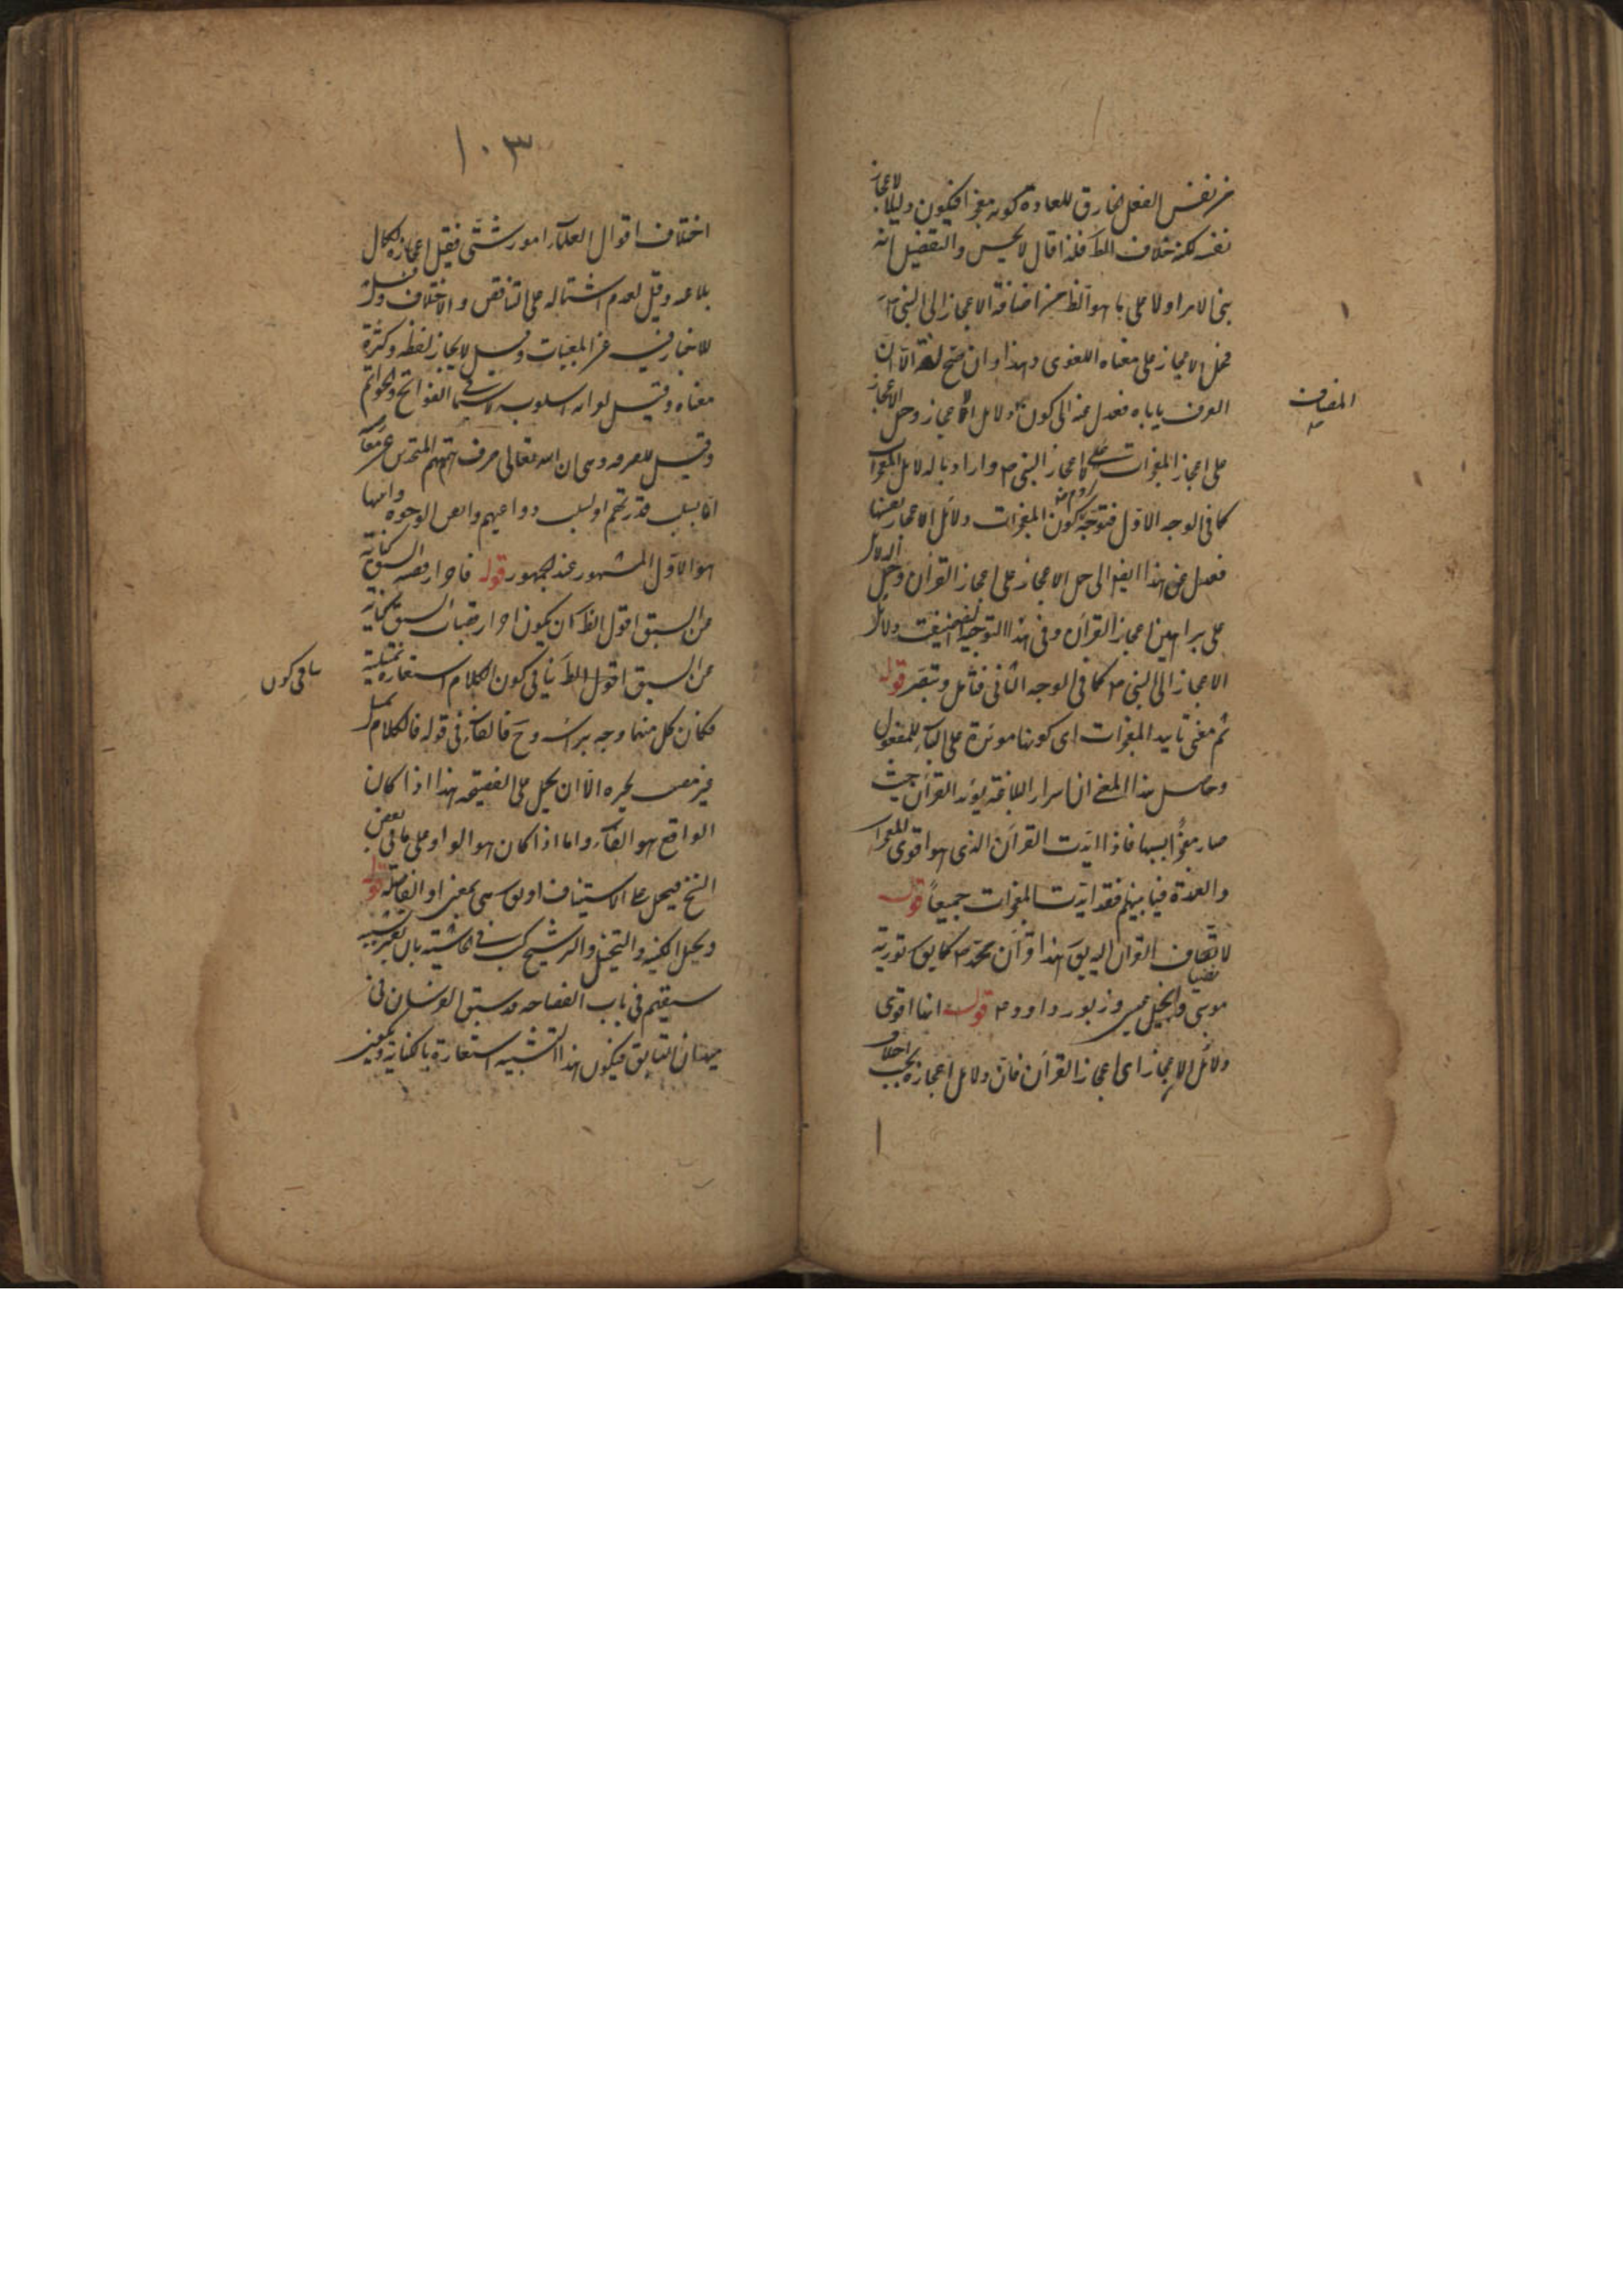 من نفس الفعل الخارق للعادة كونه معجزا فيكون دليلا لاعجاز
نفسه لكنه خلاف الظ فلذا قال لا يحسن والتفصيل انه
بنى الامر اولا على ما هو الظ من اضافة الاعجاز الى النبي ص
فحمل الاعجاز على معناه اللغوى وهذا وان صح لغة الا ان
العرف ياباه فعدل عنه الى كون دلائل الاعجاز وحمل الاعجاز
المضاف
على اعجاز المعجزات على اعجاز النبي ص واراد بالدلائل المعجزات
كما فى الوجه الاول فتوجه لزوم كون المعجزات دلائل الاعجاز بعينها
فعدل عن هذا ايضا الى حمل الاعجاز على اعجاز القرآن وحمل الدلائل
على براهين اعجاز القرآن وفى هذا التوجيه ايضا دلائل
الاعجاز الى النبي ص كما فى الوجه الثانى فتأمل وتبصر قوله
ثم معنى تأييد المعجزات اى كونها مؤيدة على البناء للمفعول
وحاصل هذا المعنى ان اسرار البلاغة يؤيد القرآن حيث
صار معجزا بسببها فاذا ايدت القرآن الذى هو اقوى المعجزات
والعمدة فيما بينهم فقد ايدت المعجزات جميعا قوله
لاتصاف القرآن اليه يق هذا قرآن محمد ص كما يق تورية
موسى وانجيل عيسى وزبور داود ص قوله انها اقوى
دلائل الاعجاز اى اعجاز القرآن فان دلائل اعجازه بحسب اختلاف
١٠٣
اختلاف اقوال العلماء امور شتى فقيل اعجازه لكمال
بلاغته وقيل لعدم اشتماله على التناقض والاختلاف وقيل
للاخبار فيه عن المغيبات وقيل لايجاز لفظه وكثرة
معناه وقيل لغرابة اسلوبه لا سيما الفواتح والخواتم
وقيل للصرفة وهى ان الله تعالى صرف هممهم المتحدين عن معارضته
اما بسلب قدرتهم او لسلب دواعيهم واصح الوجوه وامتنها
هو الاول المشهور عند الجمهور قوله فاحراز قصبة السبق كناية
عن السبق اقول الظ ان يكون احراز قصبات السبق كناية
عن السبق اقول الظ ينافى كون الكلام استعارة تمثيلية
ينافى كون
فكان كل منهما وجه براسه وح فالفاء فى قوله فالكلام تمثيل
غير مصيب لمحزه الا ان يحمل على الفصيحة هذا اذا كان
الواقع هو الفاء واما اذا كان هو الواو على ما فى بعض
النسخ فيحمل على الاستيناف او يق هى بمعنى او الفاصلة قوله
ويحمل المكنية والتخييل والترشيح فى الحاشية بان يعتبر تشبيه
سبقهم فى باب الفصاحة وسبق الفرسان فى
ميدان التسابق فيكون هذا التشبيه استعارة بالكناية ويكون